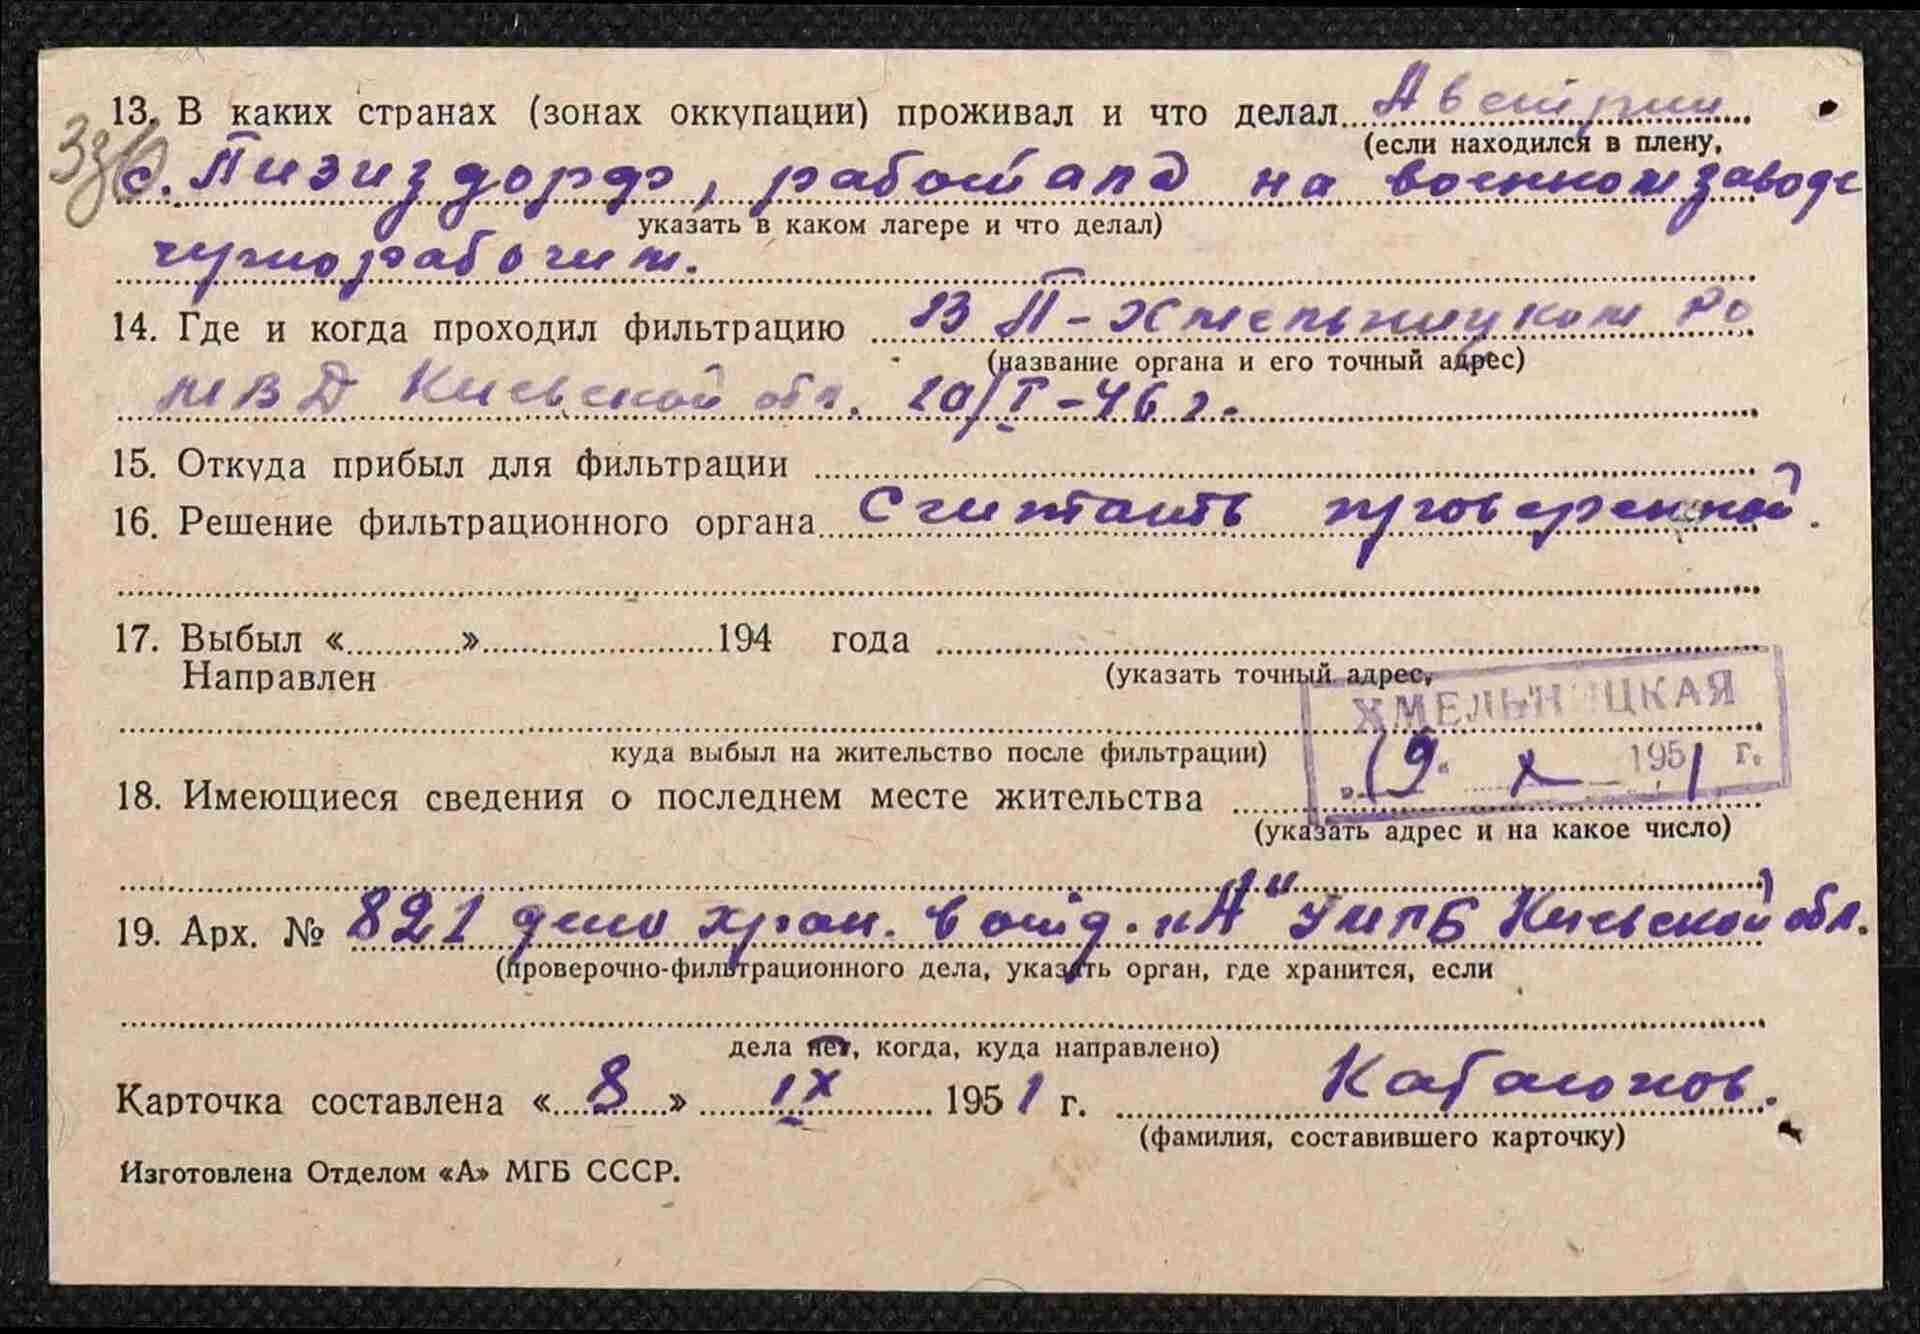 13. В каких странах (зонах оккупации) проживал и что делал Австрии
(если находился в плену,
с. Пизиздорф, работала на военном заводе
указать в каком лагере и что делал)
чернорабочим.
14. Где и когда проходил фильтрацию В П-Хмельницком РО
(название органа и его точный адрес)
МВД Киевской обл. 20/I-46 г.
15. Откуда прибыл для фильтрации
16. Решение фильтрационного органа Считать проверенной.
17. Выбыл « » 194 года
Направлен (указать точный адрес,
ХМЕЛЬНИЦКАЯ
куда выбыл на жительство после фильтрации)
„19. X 1951 г.
18. Имеющиеся сведения о последнем месте жительства
(указать адрес и на какое число)
19. Арх. № 821 дело хран. в отд. „А" УМГБ Киевской обл.
(проверочно-фильтрационного дела, указать орган, где хранится, если
дела нет, когда, куда направлено)
Карточка составлена «8» IX 1951 г.
(фамилия, составившего карточку)
Изготовлена Отделом «А» МГБ СССР.